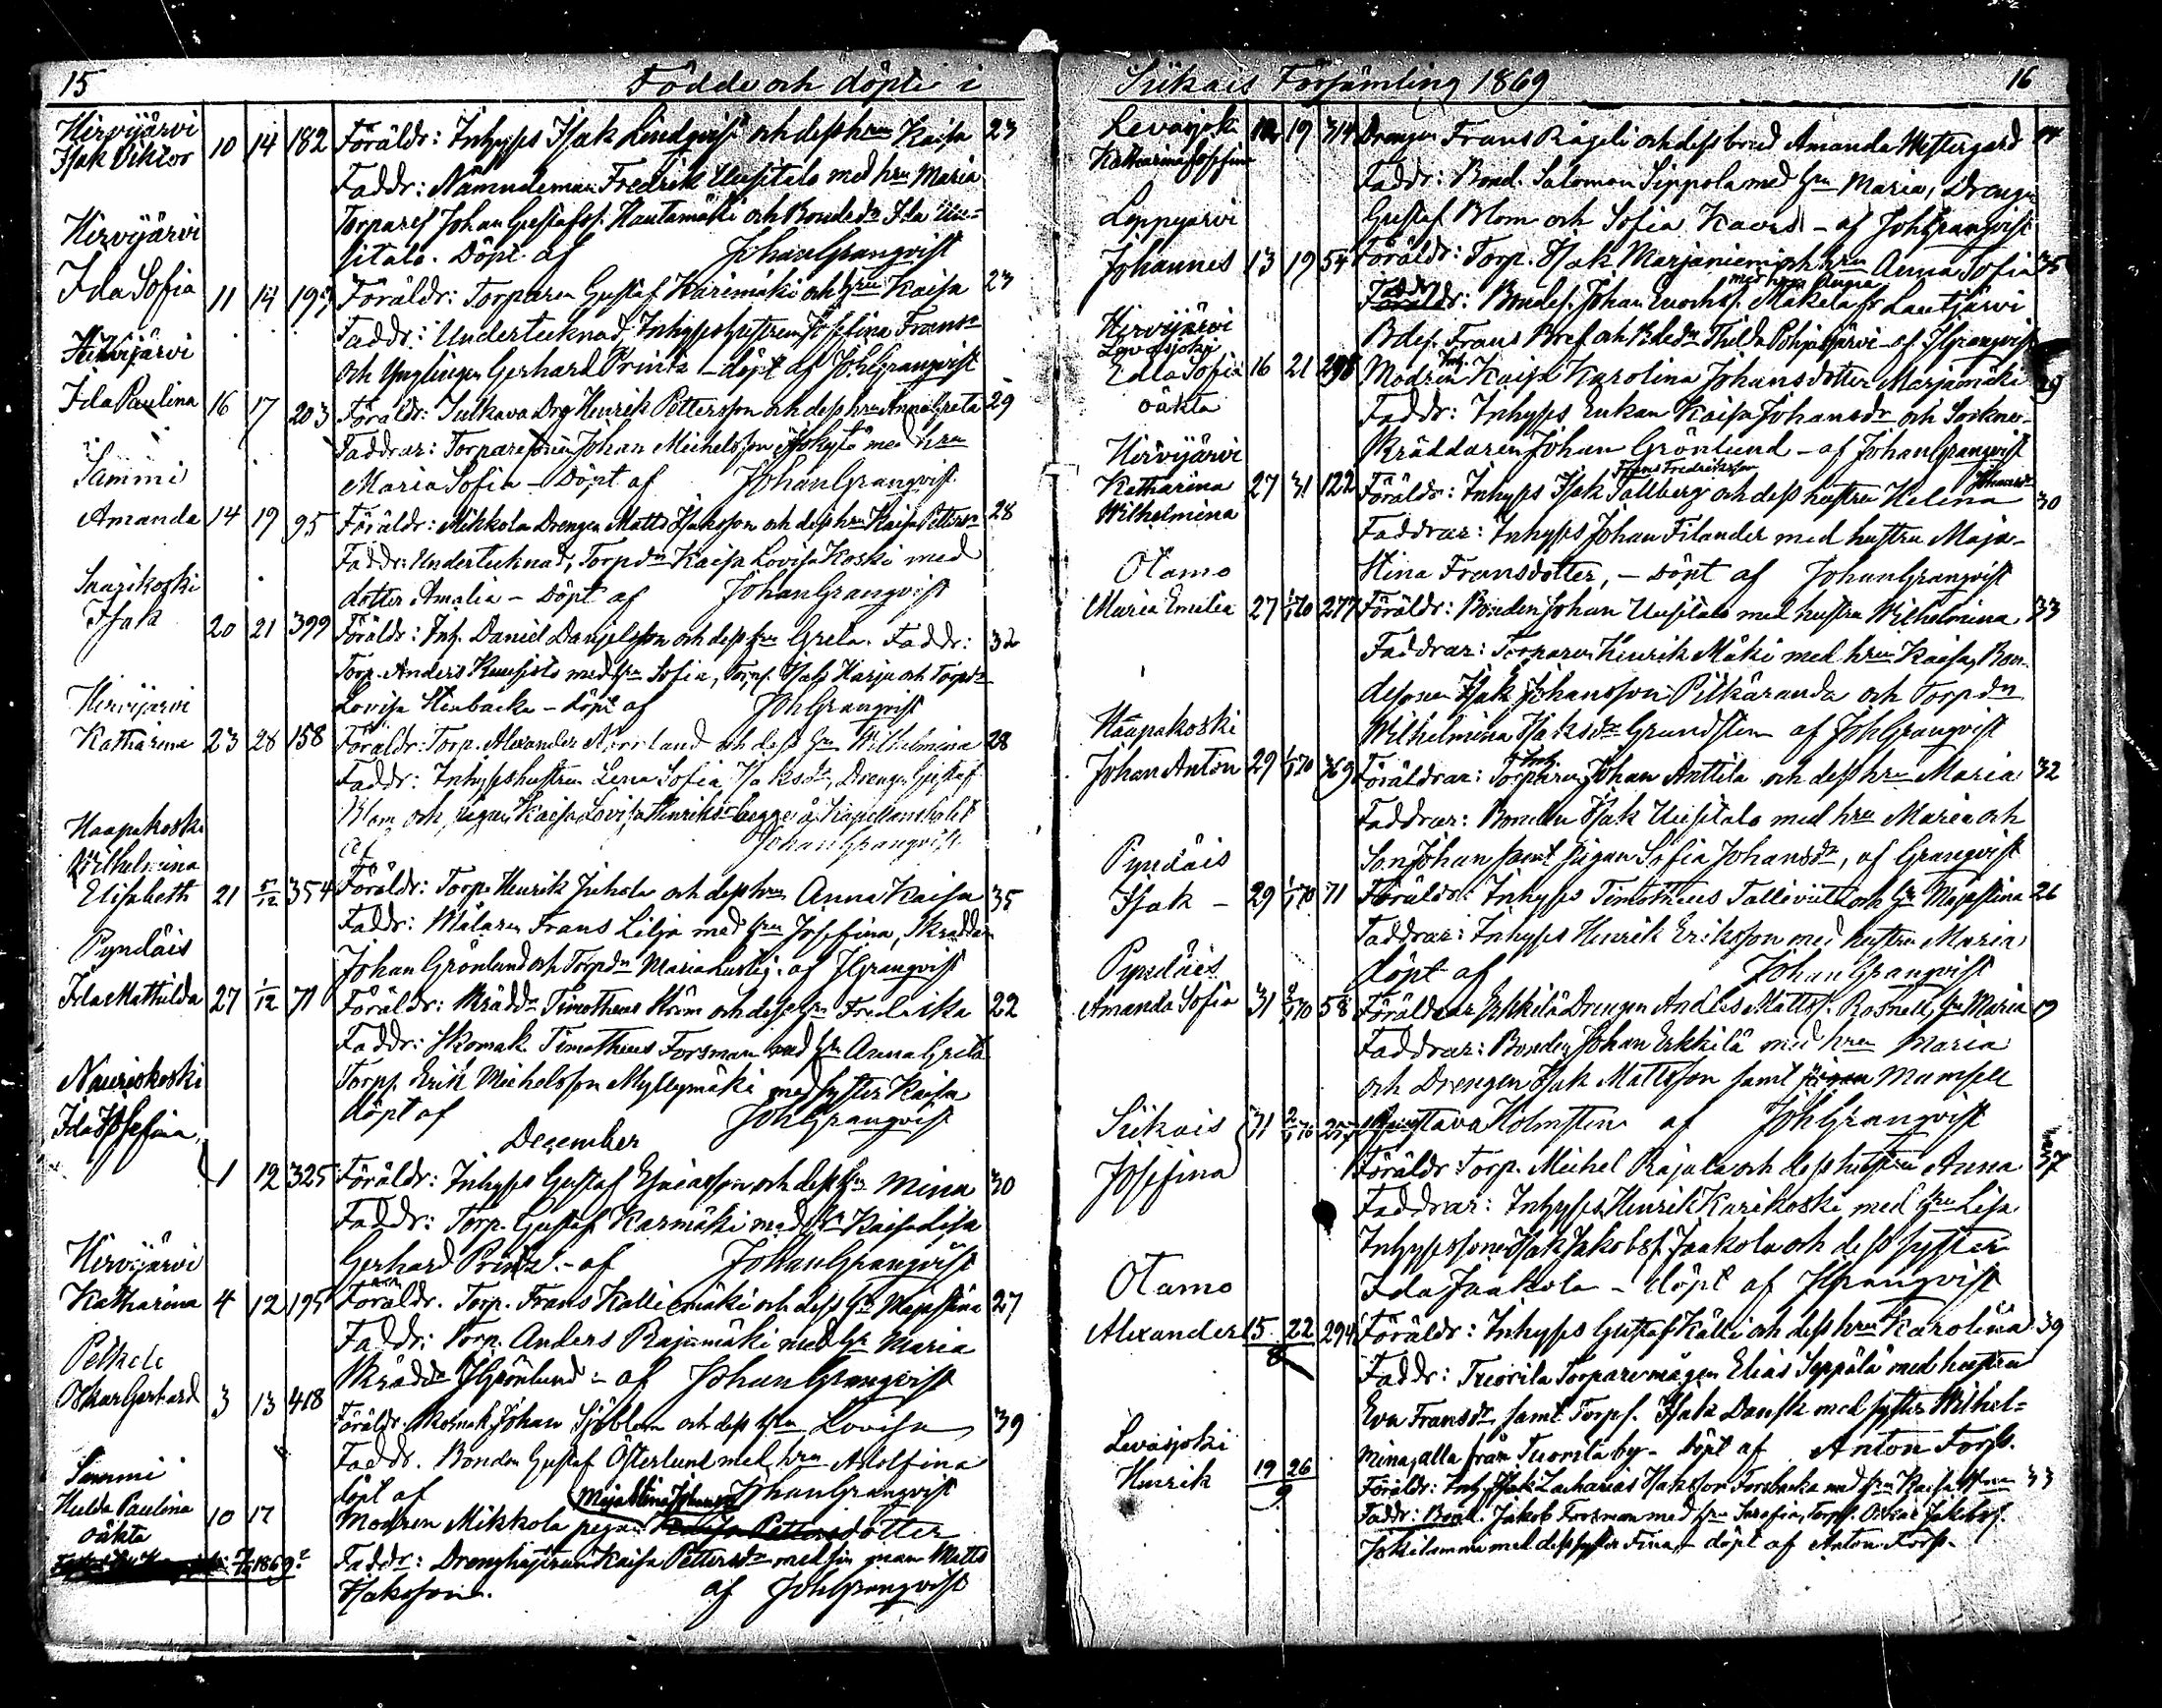 15 Födde och döpte i
Hirvijärvi
Isak Viktor 10 14 182 Föräldr: Inhyses Isak Lindqvist och dess hru Kaisa 23
Faddr: Nämndeman Fredrik Uusitalo med hru Maria
Torpares. Johan Gustafss. Hautamäki och Bondedr Ida Uu=
sitalo. Döpt af Johan Granqvist
Hirvijärvi
Ida Sofia 11 14 195 Föräldr: Torparen Gustaf Karimäki och hru Kaisa 23
Faddr: Undertecknad, Inhyseshustrun Josefina Fransdr
och Ynglingen Gerhard Printz - döpt af Joh. Granqvist
Hirvijärvi
Ida Paulina 16 17 203 Föräldr: Sulkava Drg Henrik Pettersson och dess hru Anna Greta 29
Faddrar: Torparesonen Johan Michelsson med hru
Maria Sofia - Döpt af Johan Granqvist
Sammi
Amanda 14 19 95 Föräldr: Mikkola Drengen Matts Isaksson och dess hru Kaisa Pettersdr 28
Faddr: Undertecknad, Torpdr Kaisa Lovisa Koski med
dotter Amalia - Döpt af Johan Granqvist
Isak 20 21 399 Föräldr: Inh. Daniel Danielsson och dess hru Greta. Faddr: 32
Torp. Anders Kuusisto med hru Sofia, Torps. Isak Harju och Torpdr
Lovisa - döpt af Joh Granqvist
Hirvijärvi
Katharina 23 28 158 Föräldr: Torp. Alexander Norrland och dess hru Wilhelmina 28
Faddr: Inhyseshustrun Lena Sofia Isaksdr, Drengen Gustaf
Blom och pigan Kaisa Lovisa Henriksdr begge å Kapellansbolet
af Johan Granqvist
Haapakoski
Wilhelmina
Elisabeth 21 5/12 354 Föräldr: Torp. Henrik Juhola och dess hru Anna Kaisa 35
Faddr: Målaren Frans Lilja med hru Josefina, Skräddare
Johan Grönlund och Torpdr Maria af J Granqvist
Pyndäis
Ida Mathilda 27 1/12 71 Föräldr: Skräddn Timotheus Ström och dess hru Fredrika 22
Faddr: Skomak. Timotheus Forsman med hru Anna Greta
Torps. Erik Michelsson Myllymäki med syster Kaisa
döpt af Joh Granqvist
December
Nauriskoski
Ida Josefina, 1 12 325 Föräldr: Inhyses Gustaf Esaiasson och dess hru Mina 30
Faddr: Torp. Gustaf Karmäki med hru Kaisa Lisa
Gerhard Printz - af Johan Granqvist
Hirvijärvi
Katharina 4 12 195 Föräldr. Torp. Frans Kalliomäki och dess hru Majastina 27
Faddr: Torp. Anders Rajamäki med hru Maria
Skrädd J Grönlund - af Johan Granqvist
Oskar Gerhard 3 13 418 Föräldr. Skomak Johan Sjöblom och dess hru Lovisa 39
Faddr. Bonden Gustaf Österlund med hru Adolfina
döpt af Johan Granqvist
Sammi
Hulda Paulina
oäkta 10 17 Modren Mikkola pigan Majastina Johansdr
Faddr: Drenghustrun Kaisa Pettersdr med sin man Matts
Isaksson. af Joh Granqvist
Siikais Församling 1869 16
Levasjoki
Katharina Josefina 19 314 Drengen Frans Rageli och dess brud Amanda Westergård
Faddr: Bond. Salomon Seppola med hru Maria, Drengen
Gustaf Blom och Sofia - af Joh Granqvist
Leppijärvi
Johannes 13 19 54 Föräldr: Torp. Isak Marjaniemi och hru Anna Sofia 35
Faddr: Bondes. Johan Mäkelä fr Lautjärvi
Bdes. Frans Bref och Bdedr Thilda Pohjasjärvi - af J Granqvist
Hirvijärvi
Levasjoki
Edla Sofia 16 21 298 Modren Inh. Kaisa Karolina Johansdotter Marjamäki 29
oäkta
Faddr: Inhyses Enkan Kaisa Johansdr och Sockne-
Skräddaren Johan Grönlund - af Johan Granqvist
Hirvijärvi
Katharina 27 31 122 Föräldr: Inhyses Isak Frans Fredriksson Sallberg och dess hustru Helena Johansdr 30
Wilhelmina
Faddrar: Inhyses Johan Filander med hustru Maja-
Stina Fransdotter, - Döpt af Johan Granqvist
Otamo
Maria Emilia 27 1/1 70 277 Föräldr: Bonden Johan Uusitalo med hustru Wilhelmina 33
Faddrar: Torparen Henrik Mäki med hru Kaisa, Bon-
desonen Isak Johansson Pitkäranda och Torpdn
Wilhelmina Isaksdr Grundsten af Joh Granqvist
Haapakoski
Johan Anton 29 1/1 70 369 Föräldrar: Inh. Johan Anttila och dess hru Maria 32
Faddrar: Bonden Isak Uusitalo med hru Maria och
Son Johan samt pigan Sofia Johansdr, af Granqvist
Pyndäis
Isak - 29 1/1 70 71 Föräldr: Inhyses Timotheus och hru Majastina 26
Faddrar: Inhyses Henrik Eriksson med hustru Maria
döpt af Johan Granqvist
Pyndäis
Amanda Sofia 31 2/1 70 58 Föräldrar Erkkilä Drengen Anders Mattss. Rosnell, hru Maria 19
Faddrar: Bonden Johan Erkkilä med hru Maria
och Drengen Isak Mattsson samt Mamsell
Gustava Holmsten af Joh Granqvist
Siikais
Josefina 31 2/1 70 257 Föräldr Torp. Michel Rajala och dess hustru Anna 37
Faddrar: Inhyses Henrik Karikoski med hru Lisa
Inhysessonen Isak Jakobss. Jaakola och dess syster
Ida Jaakola - döpt af J Granqvist
Otamo
Alexander 15 22 294 Föräldr: Inhyses Gustaf Källi och dess hru Karolina 39
8
Faddr: Tuorila Torparemågen Elias Seppälä med hustru
Eva Fransdr samt Torps. Isak Dansk med syster Wilhel=
mina, alla från Tuorila by - Döpt af Anton Forss.
Levasjoki
Henrik 19 26 Föräldr: Inh. Zacharias Isaksson Forsbacka med hru Kaisa 33
9
Faddr: Bond. Jakob Forsman med hru Serafia, Torps. Oskar Jakobss.
Jokilamma med dess syster Fina, - döpt af Anton Forss.